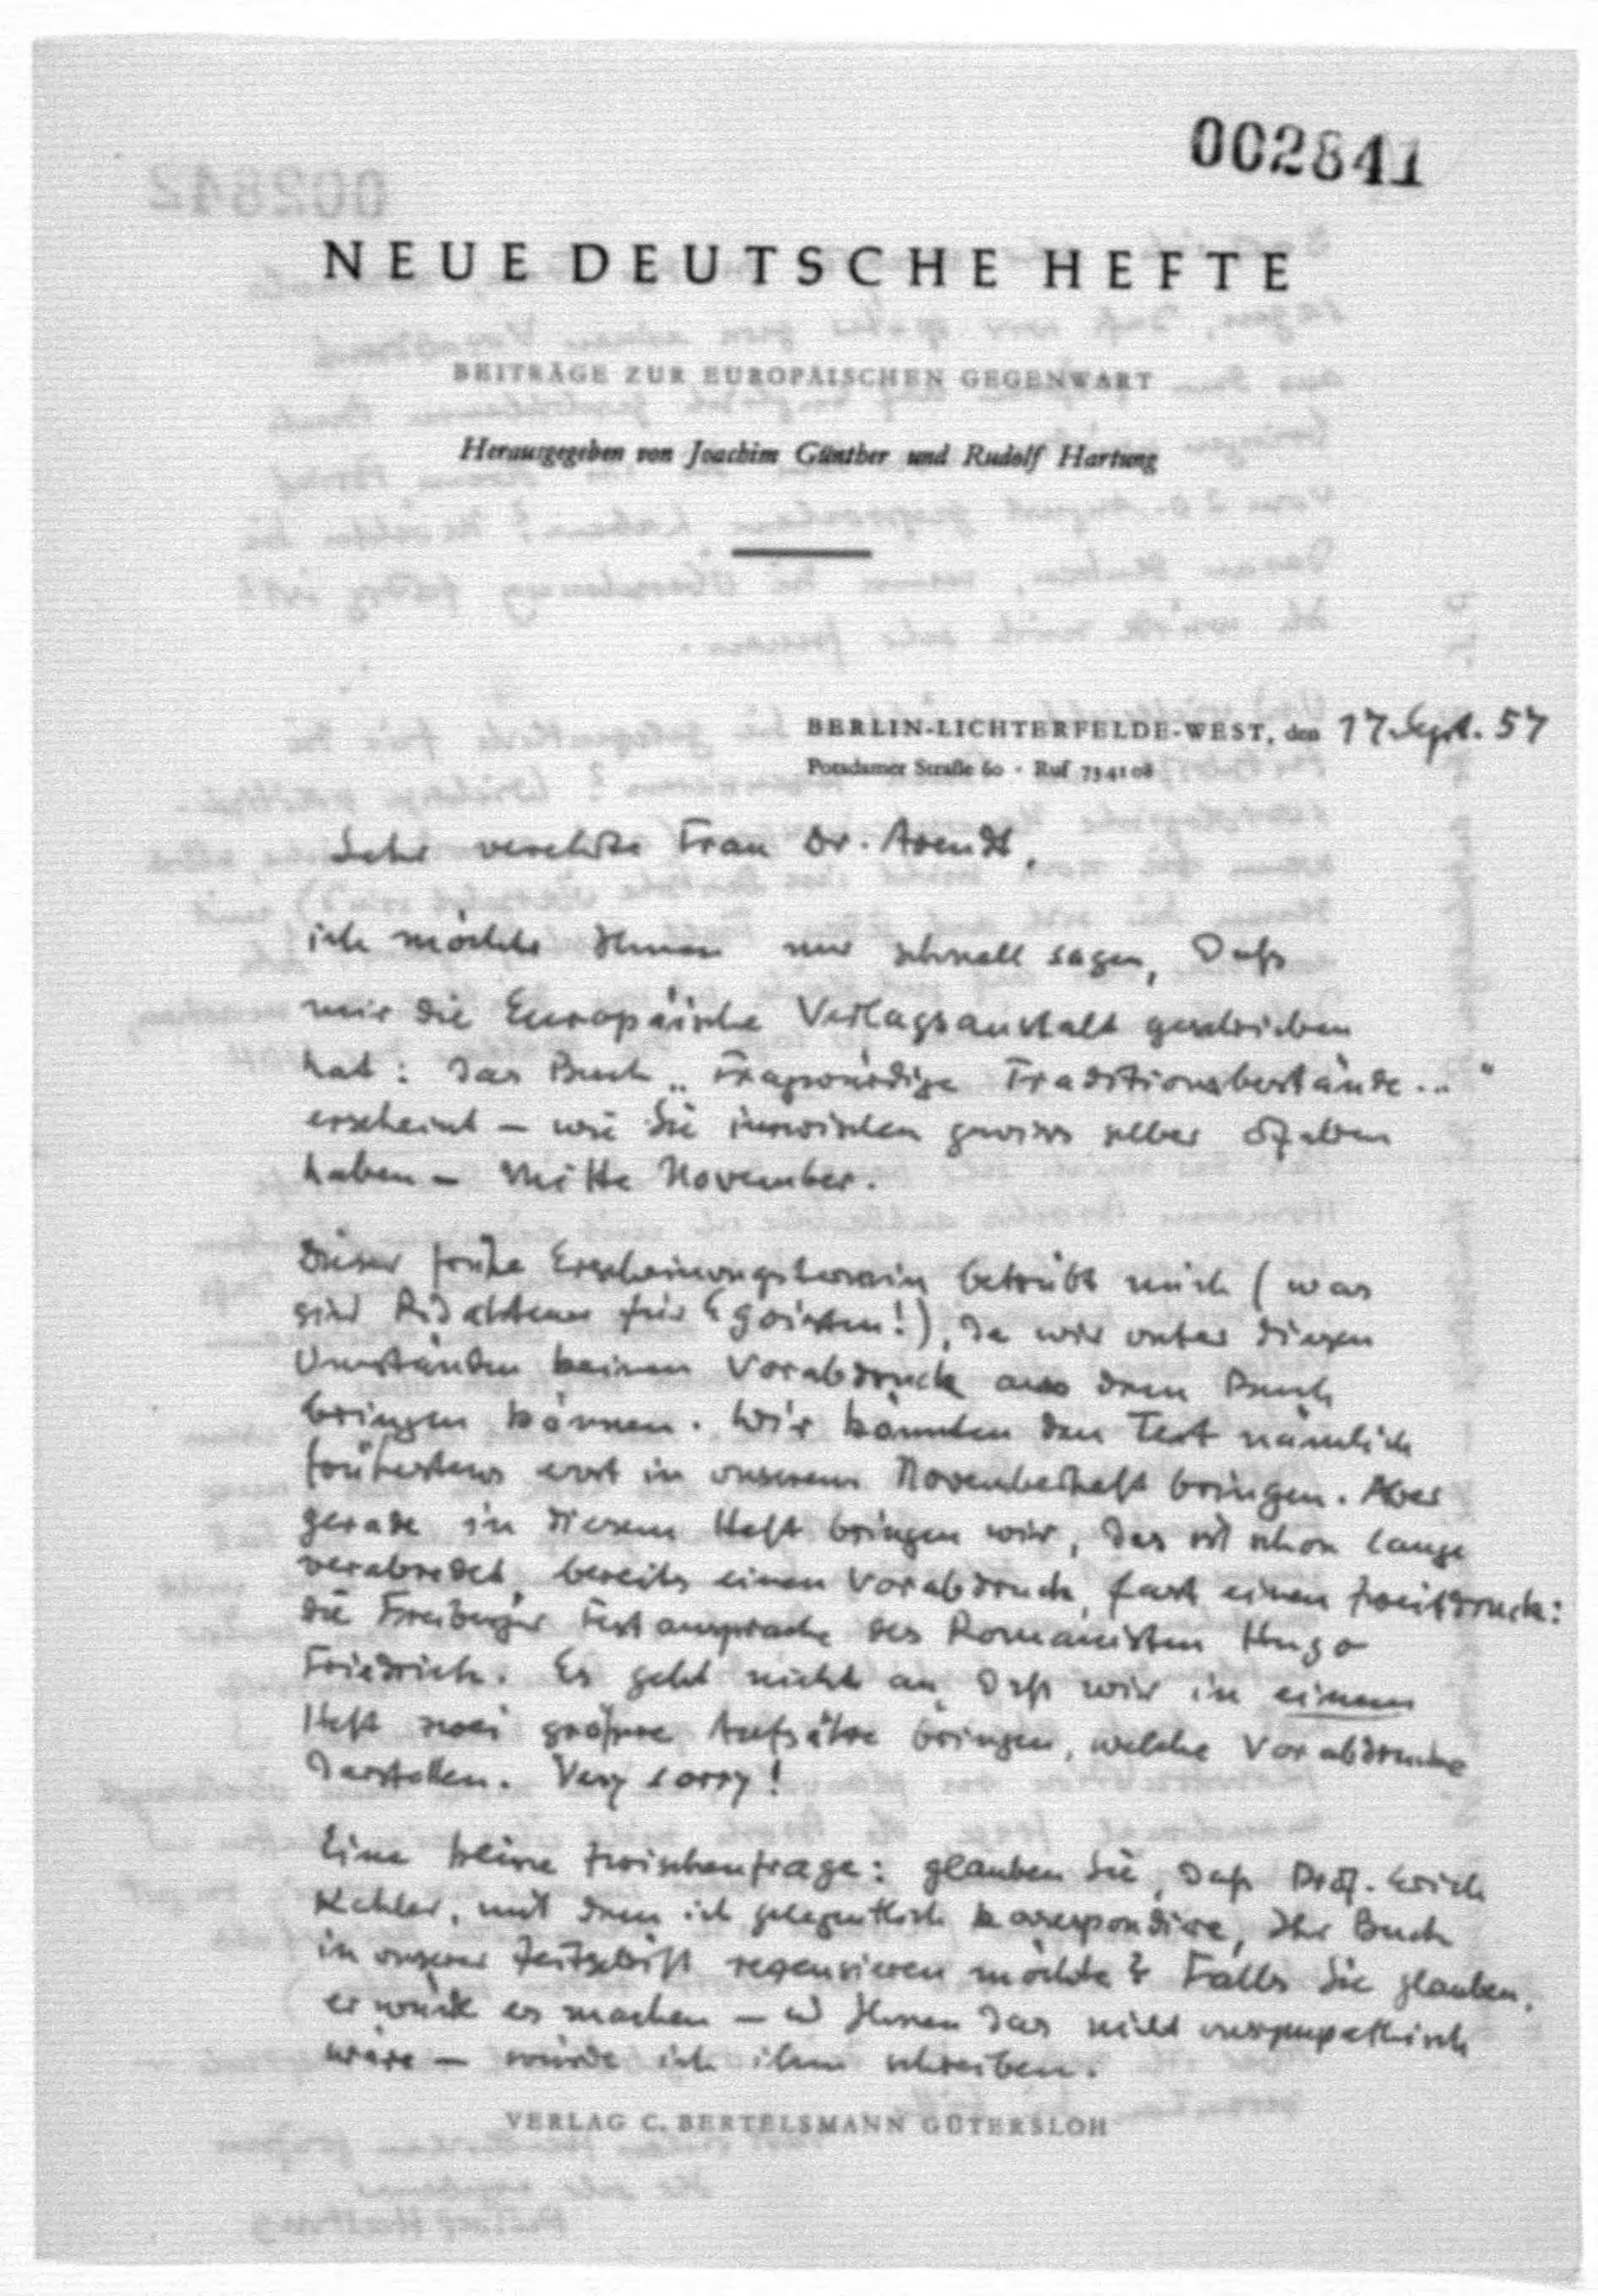 002841
NEUE DEUTSCHE HEFTE
BEITRÄGE ZUR EUROPÄISCHEN GEGENWART
Herausgegeben von Joachim Günther und Rudolf Hartung
BERLIN-LICHTERFELDE-WEST, den 17. Sept. 57
Potsdamer Straße 60 · Ruf 734108
Sehr verehrte Frau Dr. Arendt,
ich möchte Ihnen nur schnell sagen, daß
mir die Europäische Verlagsanstalt geschrieben
hat: das Buch „Fragwürdige Traditionsbestände..."
erscheint – wie Sie inzwischen gewiss selber erfahren
haben – Mitte November.
Dieser frühe Erscheinungstermin betrübt mich (was
sind Redakteure für Egoisten!), da wir unter diesen
Umständen keinen Vorabdruck aus dem Buch
bringen können. Wir könnten den Text nämlich
frühestens erst in unserem Novemberheft bringen. Aber
gerade in diesem Heft bringen wir, das ist schon lange
verabredet, bereits einen Vorabdruck, fast einen Zweitdruck:
die Freiburger Festansprache des Romanisten Hugo
Friedrich. Es geht nicht an, daß wir in einem
Heft zwei größere Aufsätze bringen, welche Vorabdrucke
darstellen. Very sorry!
Eine kleine Zwischenfrage: glauben Sie, daß Prof. Erich
Kahler, mit dem ich gelegentlich korrespondiere, Ihr Buch
in unserer Zeitschrift rezensieren möchte? Falls Sie glauben,
er würde es machen – u Ihnen das nicht unsympathisch
wäre – würde ich ihm schreiben.
VERLAG C. BERTELSMANN GÜTERSLOH